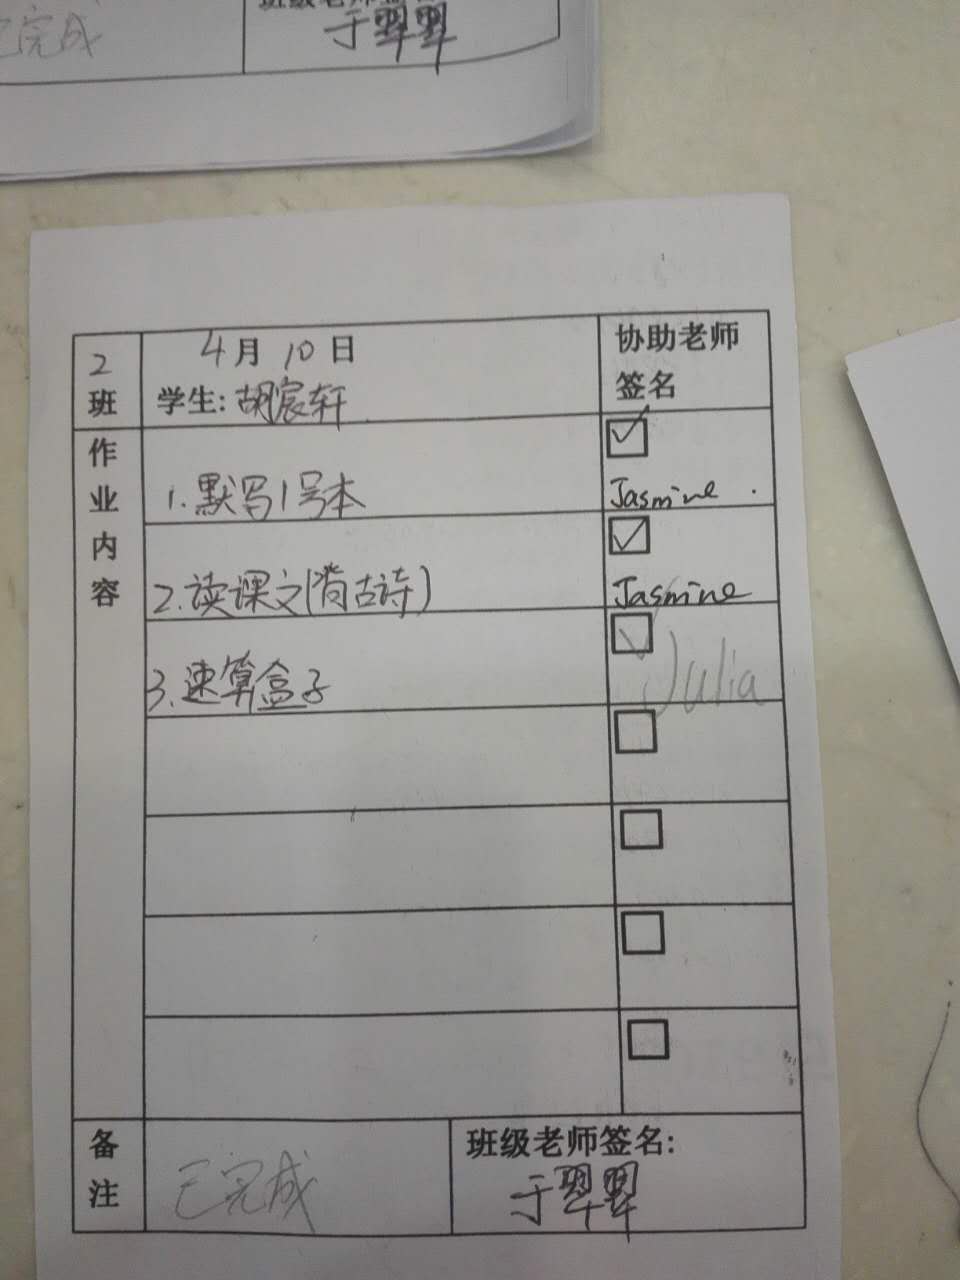 已完成
班级老师签名
于翠翠
2班
4月10日
学生:胡宸轩
协助老师签名
作业内容
1.默写1号本
Jasmine
2.读课文(背古诗)
Jasmine
3.速算盒子
Julia
备注
已完成
班级老师签名:
于翠翠